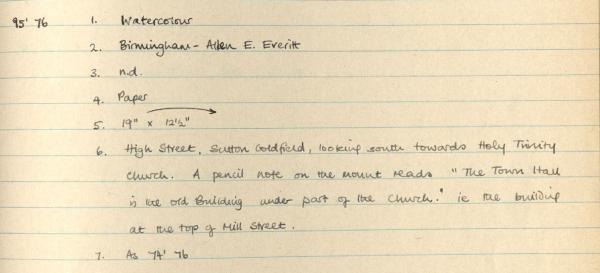 95' 76 1. Watercolour
2. Birmingham - Allen E. Everitt
3. n.d.
4. Paper
5. 19" x 12½"
6. High Street, Sutton Coldfield, looking south towards Holy Trinity
church. A pencil note on the mount reads "The Town Hall
is the old Building under part of the Church." ie the building
at the top of Mill Street.
7. As 74' 76